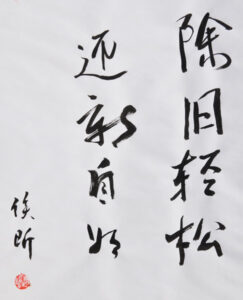 除旧轻松
迎新自如
侯昕